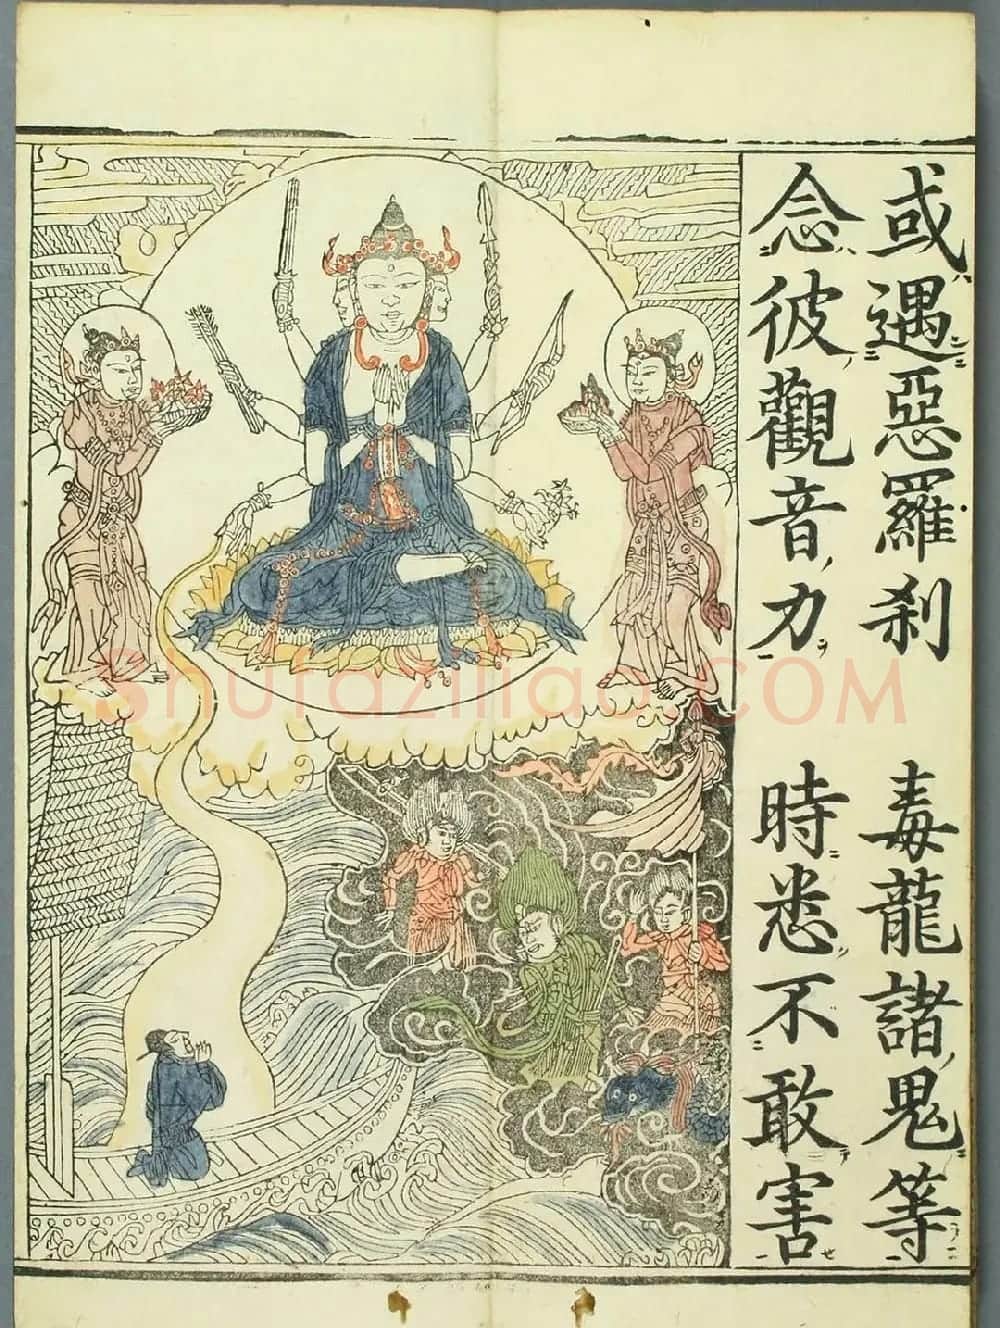 或遇惡羅刹　毒龍諸鬼等
念彼觀音力　時悉不敢害
Shufaziliao.COM